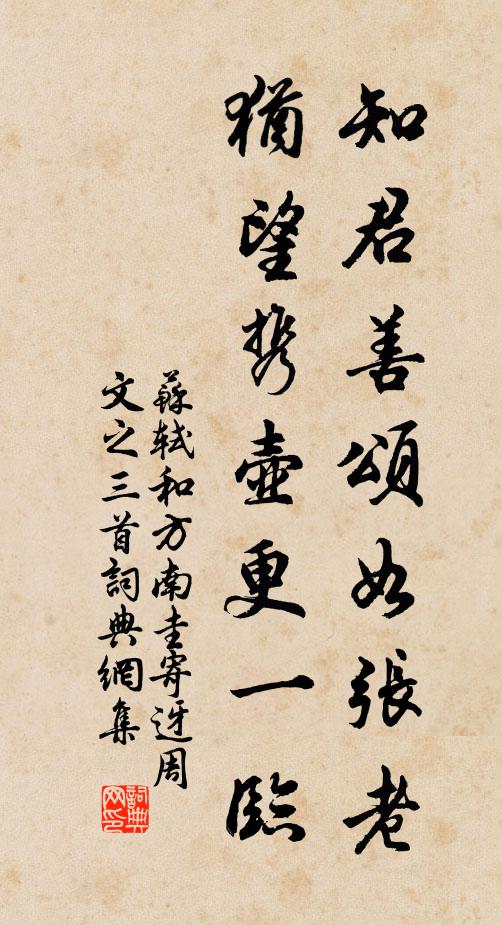 知君善頌如張老
猶望携壺更一臨
蘇軾和方南圭寄迓周
文之三首詞典網集
詞典
网印